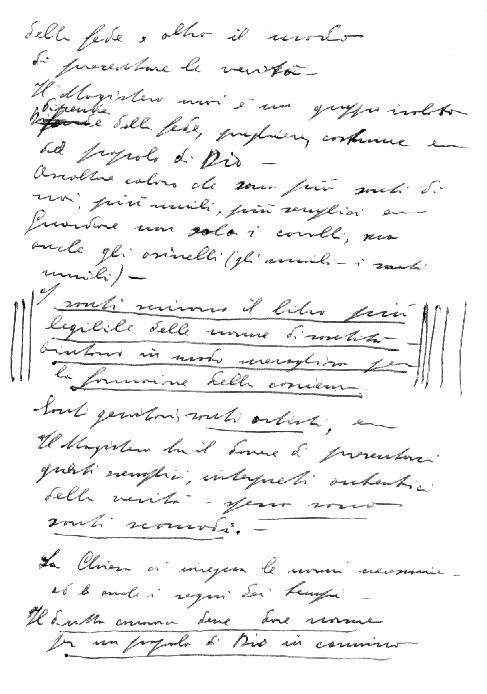 della fede, altro il modo
di presentare le verità –
Il Magistero non è un gruppo isolato
dipende dalla fede, preghiera, costume ecc
del popolo di Dio –
Ascoltare coloro che sono più santi di
noi, più umili, più semplici ecc
Guardare non solo i cavalli, ma
anche gli asinelli (gli umili – i santi
umili) –
I santi scrivono il libro più
legibile delle norme di santità –
aiutano in modo meraviglioso per
la formazione della coscienza.
Santi genitori, santi artisti, ecc
Il Magistero ha il dovere di presentarci
questi esemplari, interpreti autentici
della verità – spesso sono
santi scomodi. –
La Chiesa ci insegna le norme necessarie –
ed anche i segni dei tempi –
Il diritto canonico deve dare norme
per un popolo di Dio in cammino